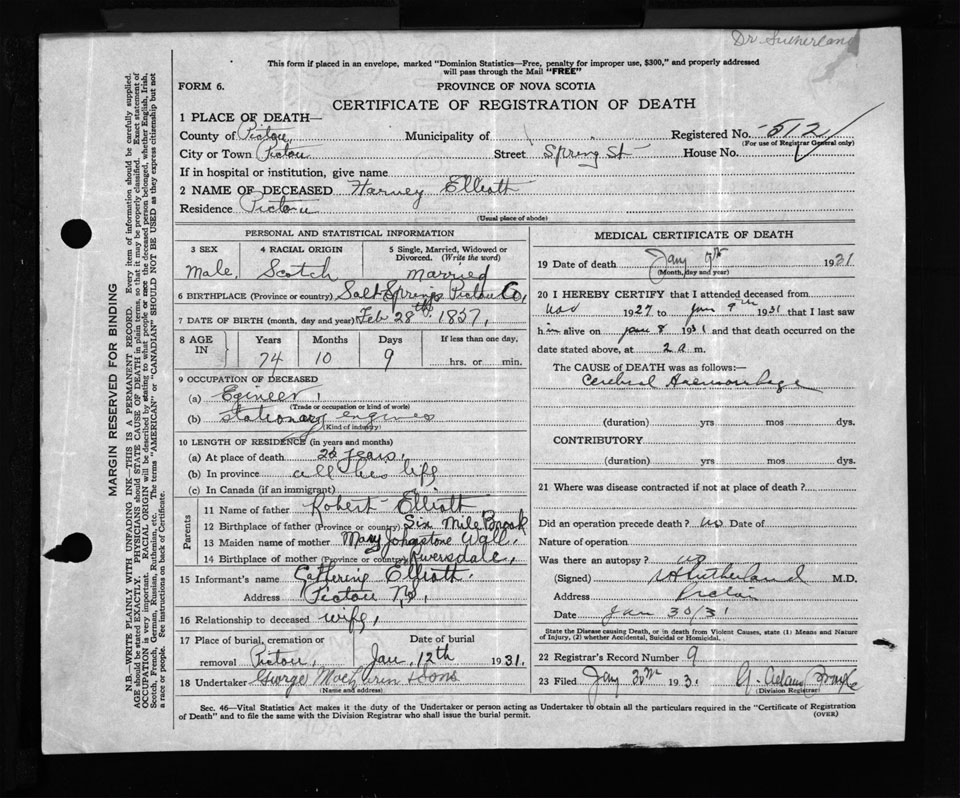 Dr. Sutherland
This form if placed in an envelope, marked "Dominion Statistics—Free, penalty for improper use, $300," and properly addressed
will pass through the Mail "FREE"
FORM 6.
PROVINCE OF NOVA SCOTIA
CERTIFICATE OF REGISTRATION OF DEATH
1 PLACE OF DEATH—
County of Pictou, Municipality of Registered No. 5121
(For use of Registrar General only)
City or Town Pictou Street Spring St House No.
If in hospital or institution, give name
2 NAME OF DECEASED Harvey Elliott
Residence Pictou
(Usual place of abode)
MARGIN RESERVED FOR BINDING
N.B.—WRITE PLAINLY WITH UNFADING INK—THIS IS A PERMANENT RECORD. Every item of information should be carefully supplied.
AGE should be stated EXACTLY. PHYSICIANS should STATE CAUSE OF DEATH in plain terms, so that it may be properly classified. Exact statement of
OCCUPATION is very important. RACIAL ORIGIN will be described by stating to what people or race the deceased person belonged, whether English, Irish,
Scotch, French, German, Russian, Ruthenian, etc. The terms "AMERICAN" or "CANADIAN" SHOULD NOT BE USED as they express citizenship but not
a race or people. See instructions on back of Certificate.
PERSONAL AND STATISTICAL INFORMATION
3 SEX 4 RACIAL ORIGIN 5 Single, Married, Widowed or
Divorced. (Write the word)
Male, Scotch married
6 BIRTHPLACE (Province or country) Salt Springs Pictou Co,
7 DATE OF BIRTH (month, day and year) Feb 28th 1857,
8 AGE IN Years Months Days If less than one day,
74 10 9 hrs. or min.
9 OCCUPATION OF DECEASED
(a) Egineer,
(Trade or occupation or kind of work)
(b) stationary engines
(Kind of industry)
10 LENGTH OF RESIDENCE (in years and months)
(a) At place of death years,
(b) In province all his life
(c) In Canada (if an immigrant)
Parents
11 Name of father Robert Elliott
12 Birthplace of father (Province or country) Six Mile Brook
13 Maiden name of mother Mary Johnstone Wall.
14 Birthplace of mother (Province or country) Riversdale,
15 Informant's name Elliott.
Address Pictou N.S,
16 Relationship to deceased wife,
17 Place of burial, cremation or Date of burial
removal Pictou, Jan. 12th 1931.
18 Undertaker George & Sons
(Name and address)
MEDICAL CERTIFICATE OF DEATH
19 Date of death Jany 9th 1931
(Month, day and year)
20 I HEREBY CERTIFY that I attended deceased from
Nov 1927 to Jan 9th 1931 that I last saw
him alive on Jan 8 1931 and that death occurred on the
date stated above, at 2 a m.
The CAUSE OF DEATH was as follows:—
Cerebral Haemorrhage
(duration) yrs mos dys.
CONTRIBUTORY
(duration) yrs mos dys.
21 Where was disease contracted if not at place of death?
Did an operation precede death? no Date of
Nature of operation
Was there an autopsy? no
(Signed) Sutherland M.D.
Address Pictou
Date Jan 30/31
State the Disease causing Death, or in death from Violent Causes, state (1) Means and Nature
of Injury, (2) whether Accidental, Suicidal or Homicidal.
22 Registrar's Record Number 9
23 Filed Jany 30th 1931 G. Adams
(Division Registrar)
Sec. 46—Vital Statistics Act makes it the duty of the Undertaker or person acting as Undertaker to obtain all the particulars required in the "Certificate of Registration
of Death" and to file the same with the Division Registrar who shall issue the burial permit.
(OVER)